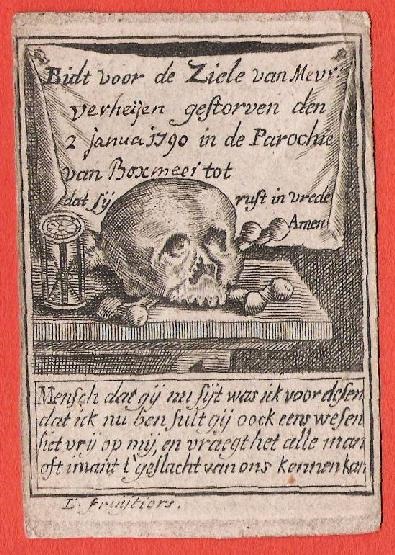 Bidt voor de Ziele van Mevr
verheijen gestorven den
2 janua 1790 in de Parochie
van Boxmeer tot
dat sij rust in vrede
Amen
Mensch dat gij nu sijt was ick voor desen
dat ick nu ben sult gij oock eens wesen
siet vrij op mij, en vraegt het alle man
oft imant t'geslacht van ons kennen kan
L. fruijtiers.